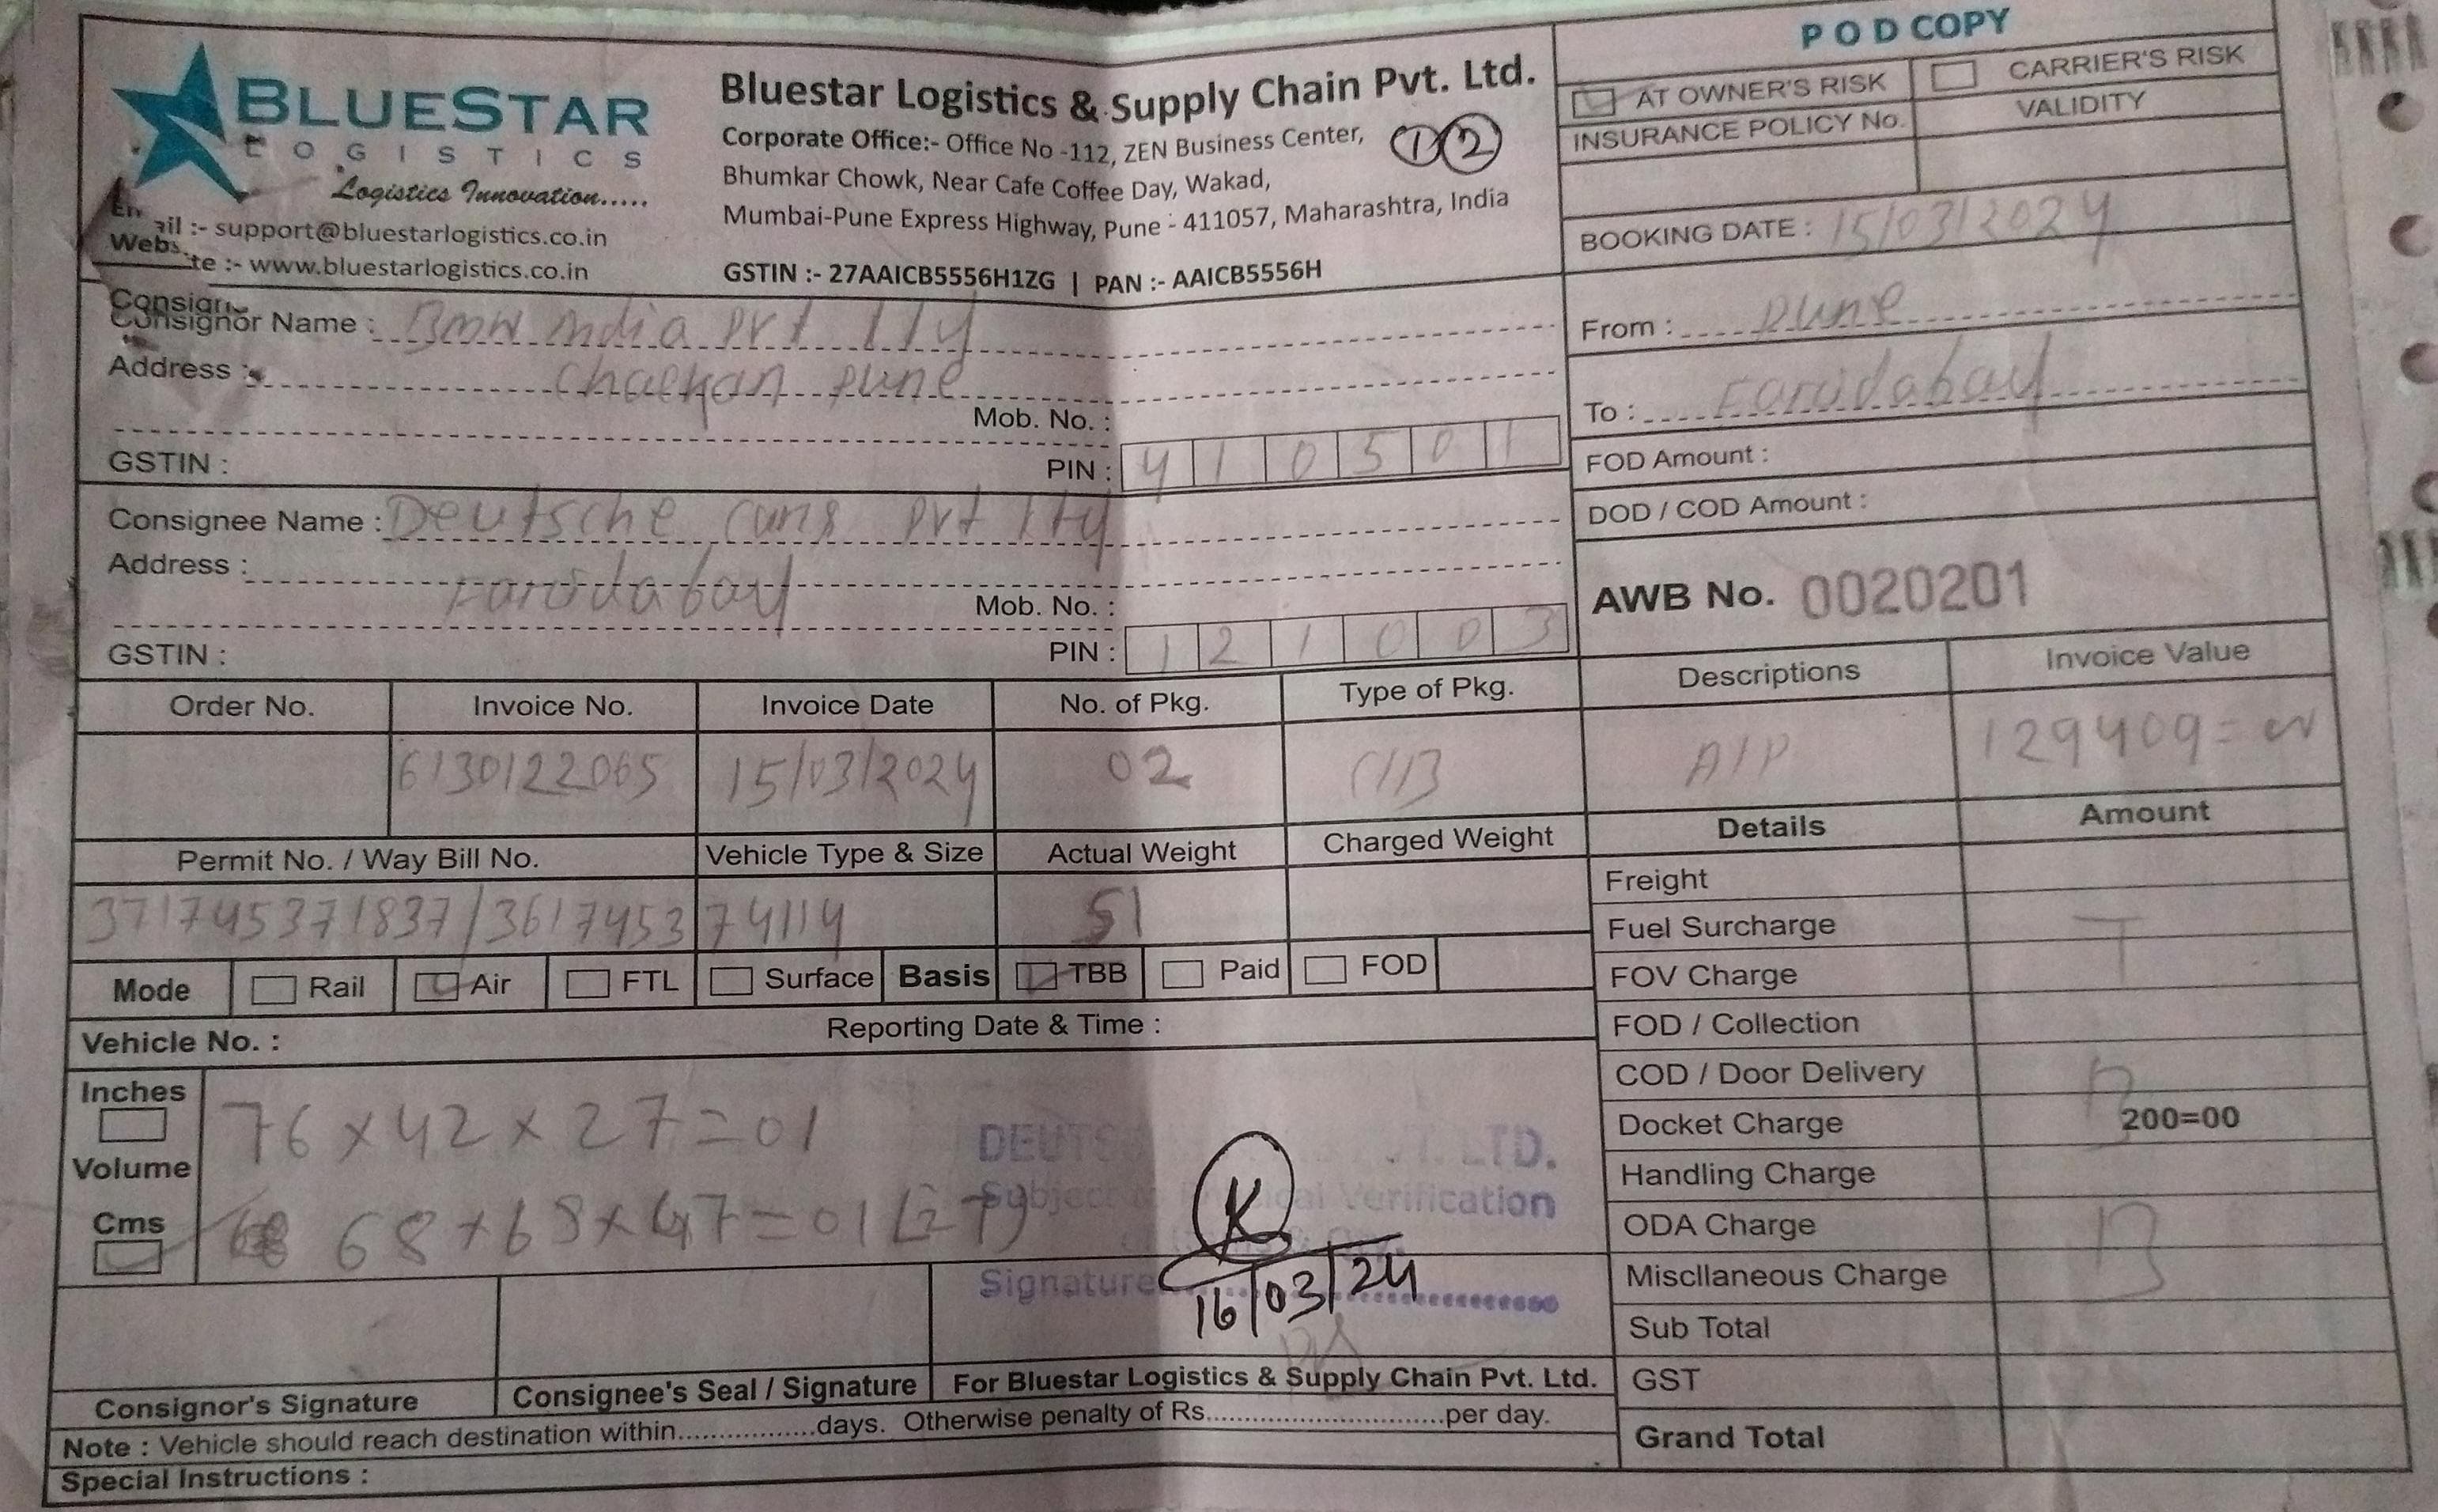 POD COPY
BLUESTAR
LOGISTICS
Logistics Innovation.....
ail :- support@bluestarlogistics.co.in
Webs te :- www.bluestarlogistics.co.in
Bluestar Logistics & Supply Chain Pvt. Ltd.
Corporate Office:- Office No -112, ZEN Business Center,
Bhumkar Chowk, Near Cafe Coffee Day, Wakad,
Mumbai-Pune Express Highway, Pune - 411057, Maharashtra, India
GSTIN :- 27AAICB5556H1ZG | PAN :- AAICB5556H
1 2
AT OWNER'S RISK CARRIER'S RISK
INSURANCE POLICY No. VALIDITY
BOOKING DATE : 15/03/2024
Consignor Name : BMW India Pvt
Address : Chackan Pune
Mob. No. :
GSTIN : PIN : 410501
From : Pune
To :
FOD Amount :
DOD / COD Amount :
Consignee Name : Deutsche cars Pvt
Address :
Mob. No. :
GSTIN : PIN : 121003
AWB No. 0020201
Order No. Invoice No. Invoice Date No. of Pkg. Type of Pkg. Descriptions Invoice Value
6130122065 15/03/2024 02 A/P 129409=
Permit No. / Way Bill No. Vehicle Type & Size Actual Weight Charged Weight
371745371837/361745374114 51
Mode Rail Air FTL Surface Basis TBB Paid FOD
Vehicle No. : Reporting Date & Time :
Inches
Volume
Cms
76 x 42 x 27 = 01
68 x 68 x 47 = 01 (27)
DEUTS T. LTD.
Verification
Signature
K
16/03/24
Details Amount
Freight
Fuel Surcharge
FOV Charge
FOD / Collection
COD / Door Delivery
Docket Charge 200=00
Handling Charge
ODA Charge
Miscllaneous Charge
Sub Total
GST
Grand Total
Consignor's Signature Consignee's Seal / Signature For Bluestar Logistics & Supply Chain Pvt. Ltd.
Note : Vehicle should reach destination within.................days. Otherwise penalty of Rs.............................per day.
Special Instructions :